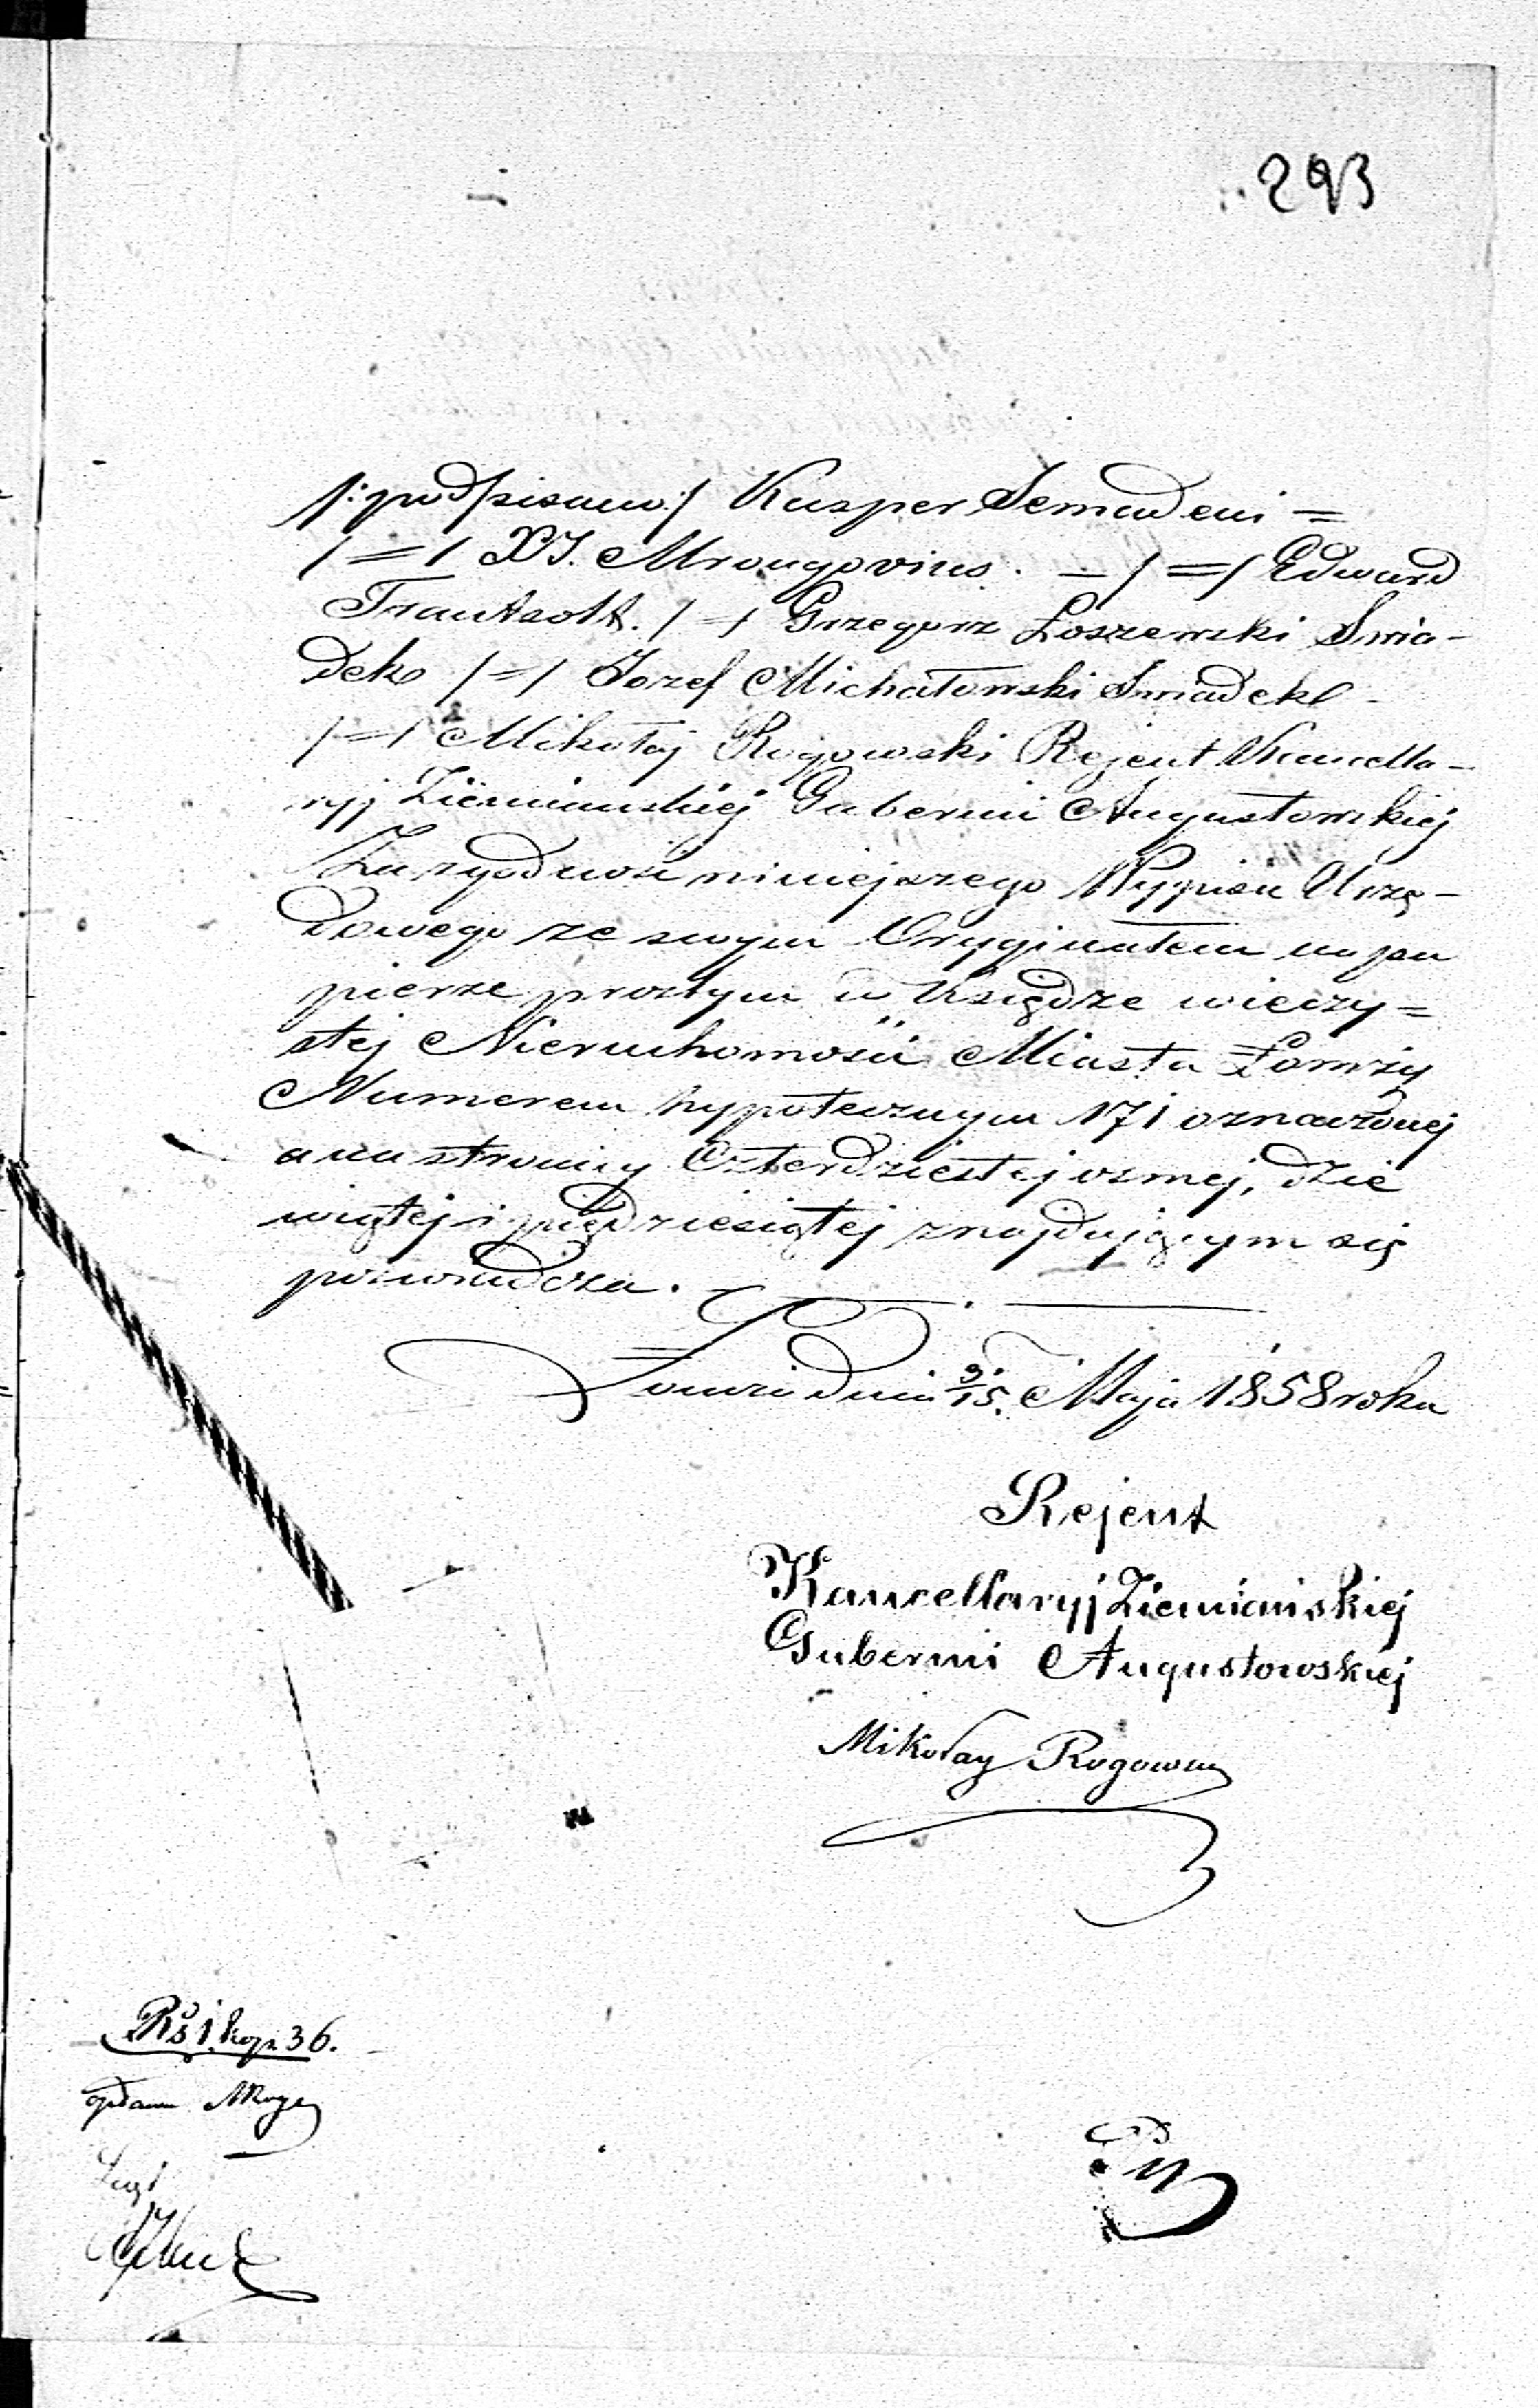 293
/:podpisano:/ Kasper Semadeni =
/=/ XJ. Mrongovius. – /=/ Edward
Trautsolt. /=/ Grzegorz Łoszewski Swia-
dek /=/ Jozef Michałowski Swiadek -
/=/ Mikołaj Rogowski Rejent Kancella-
ryj Ziemianskiej Gubernii Augustowskiej
Za zgodność niniejszego Wypisu Urzę-
dowego ze swym Oryginałem na pa
pierze prostym w Księdze wieczy=
stej Nieruchomości Miasta Łomży
Numerem hypotecznym 171 oznaczonej
a na stronicy Czterdziestej osmej, dzie
wiątej i pięćdziesiątej znajdującym się
poswiadcza.
Łomża dnia 3/15. Maja 1858 roku
Rejent
Kancellaryj Ziemiańskiej
Gubernii Augustowskiej
Mikołay Rogowski
Rs 1 kop. 36.
MRoge